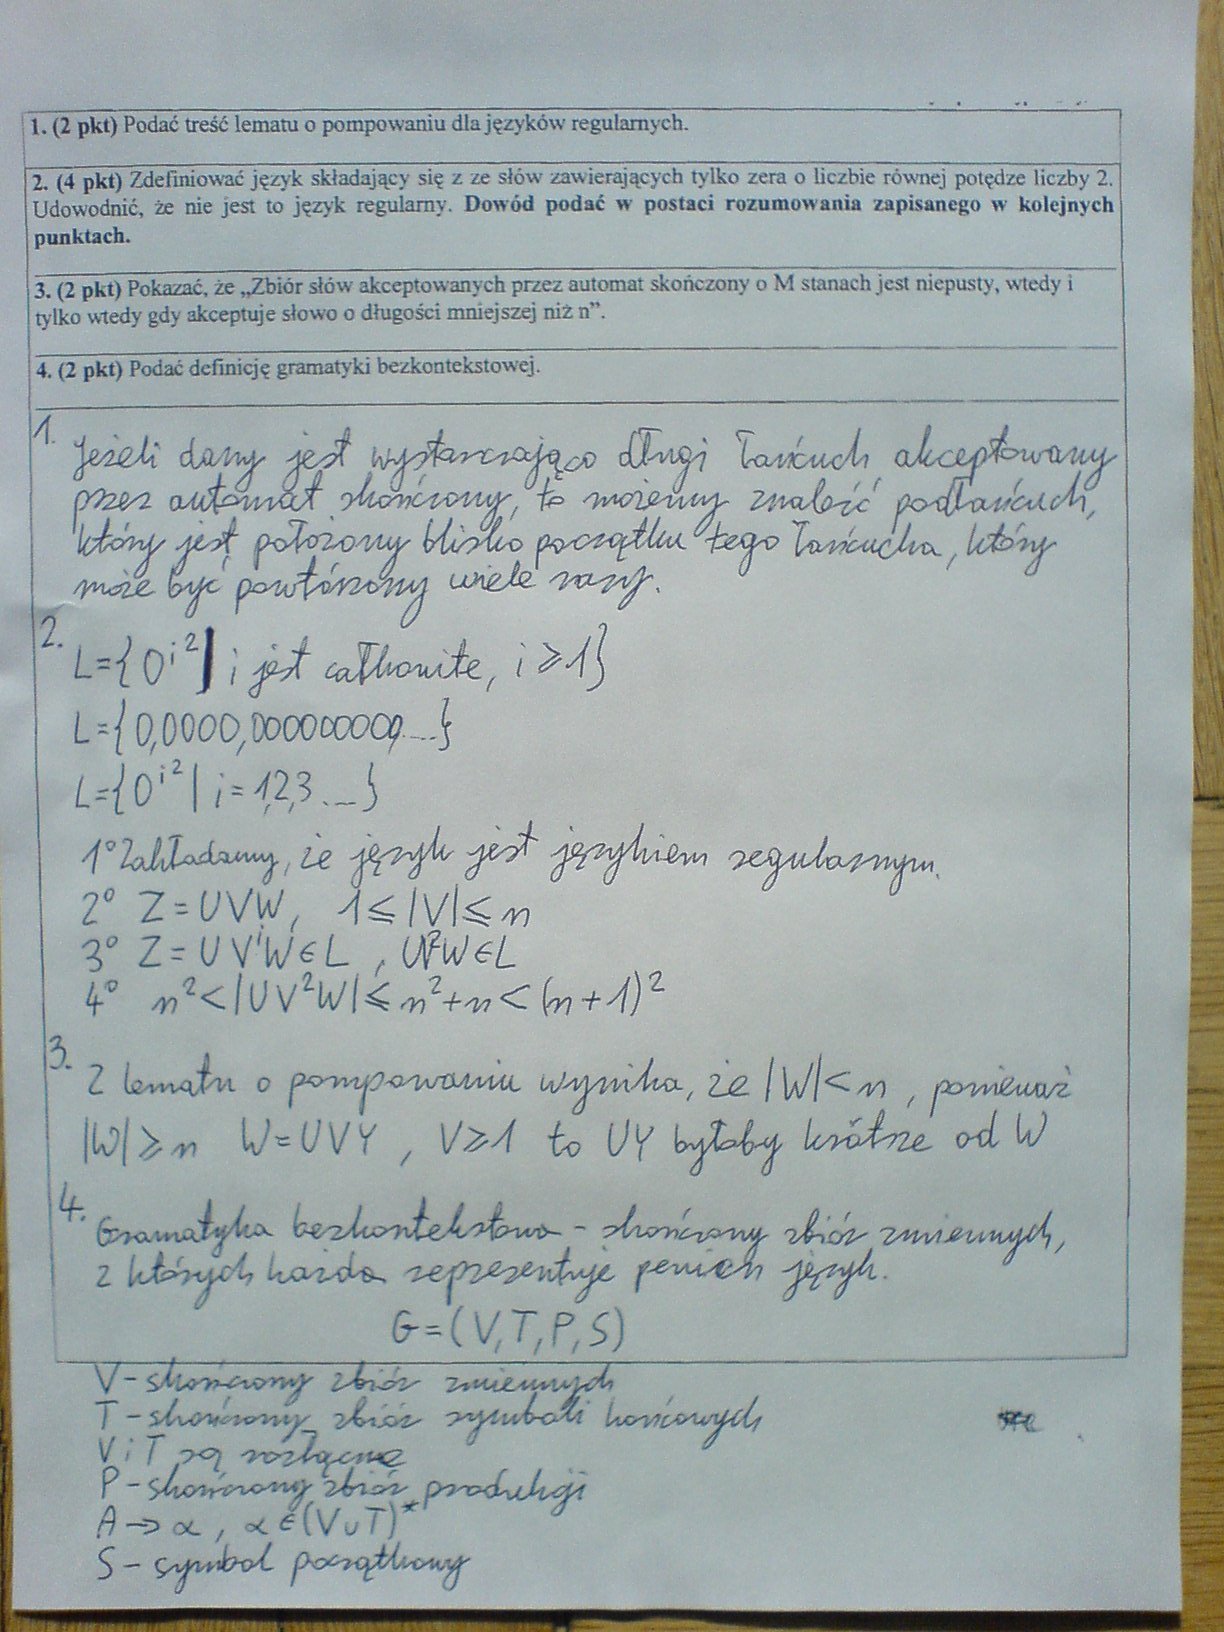 1. (2 pkt) Podać treść lematu o pompowaniu dla języków regularnych.
2. (4 pkt) Zdefiniować język składający się z ze słów zawierających tylko zera o liczbie równej potędze liczby 2.
Udowodnić, że nie jest to język regularny. Dowód podać w postaci rozumowania zapisanego w kolejnych
punktach.
3. (2 pkt) Pokazać, że „Zbiór słów akceptowanych przez automat skończony o M stanach jest niepusty, wtedy i
tylko wtedy gdy akceptuje słowo o długości mniejszej niż n”.
4. (2 pkt) Podać definicję gramatyki bezkontekstowej.
1. Jeżeli dany jest wystarczająco długi łańcuch akceptowany
przez automat skończony, to możemy znaleźć podłańcuch,
który jest położony blisko początku tego łańcucha, który
może być powtórzony wiele razy.
2. L={0^i^2 | i jest całkowite, i ≥ 1}
L={0,0000,000000000,...}
L={0^i^2 | i=1,2,3...}
1° Zakładamy, że język jest językiem regularnym.
2° Z=UVW, 1≤|V|≤n
3° Z=UV^iW∈L, UV²W∈L
4° n²<|UV²W|≤n²+n<(n+1)²
3. Z lematu o pompowaniu wynika, że |W|<n, ponieważ
|W|≥n W=UVY, V≥1 to UY byłoby krótsze od W
4. Gramatyka bezkontekstowa - skończony zbiór zmiennych,
z których każda reprezentuje pewien język.
G=(V,T,P,S)
V - skończony zbiór zmiennych
T - skończony zbiór symboli końcowych
V i T są rozłączne
P - skończony zbiór produkcji
A→α, α∈(V∪T)*
S - symbol początkowy